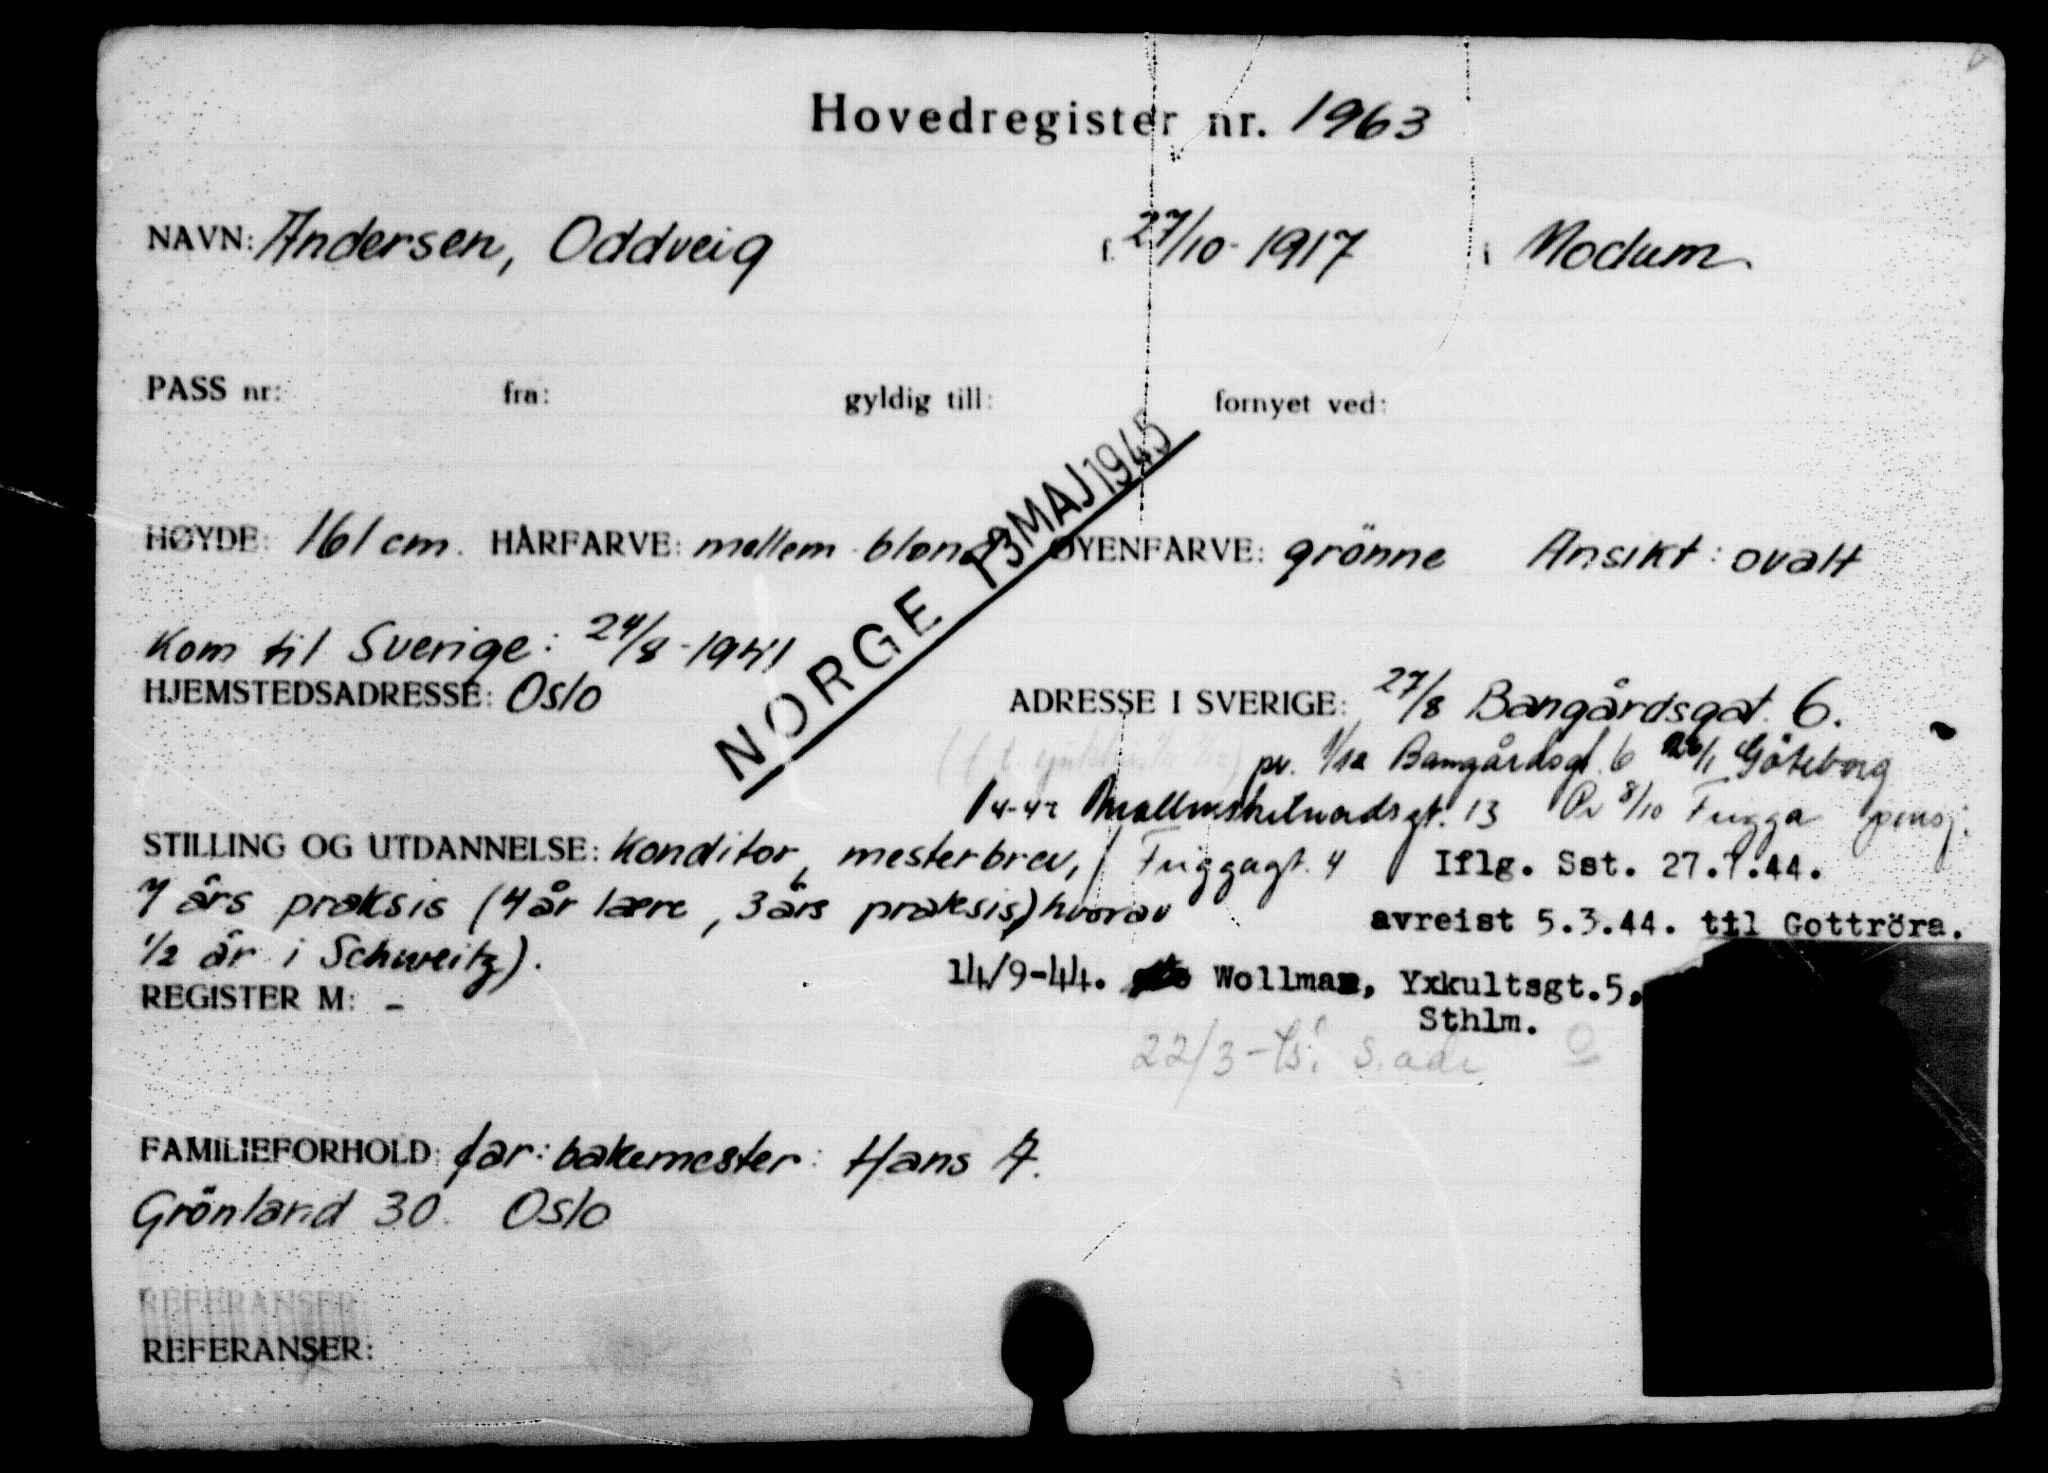 Hovedregister nr. 1963
NAVN: Andersen, Oddveig f. 27/10-1917 i Modum
PASS nr: fra: gyldig till: fornyet ved:
NORGE 13 MAJ 1945
HØYDE: 161 cm. HÅRFARVE: mellem blond ØYENFARVE: grönne Ansikt: ovalt
Kom til Sverige: 24/8-1941
HJEMSTEDSADRESSE: Oslo
ADRESSE I SVERIGE: 27/8 Bangårdsgat. 6.
pr. 1/12 Bangårdsgt. 6 Göteborg
13 Pr 8/10 Frigga pensj.
STILLING OG UTDANNELSE: Konditor, mesterbrev,
7 års praksis (4 år lære, 3 års praksis) hvorav
1/2 år i Schweitz).
Friggagt. 4 Iflg. Sst. 27.7.44.
avreist 5.3.44. til Gottröra.
14/9-44. Wollmar, Yxkultsgt.5,
Sthlm.
22/3-45: s. adr
REGISTER M: -
FAMILIEFORHOLD: far: bakermester: Hans A.
Grönland 30. Oslo
REFERANSER:
REFERANSER: